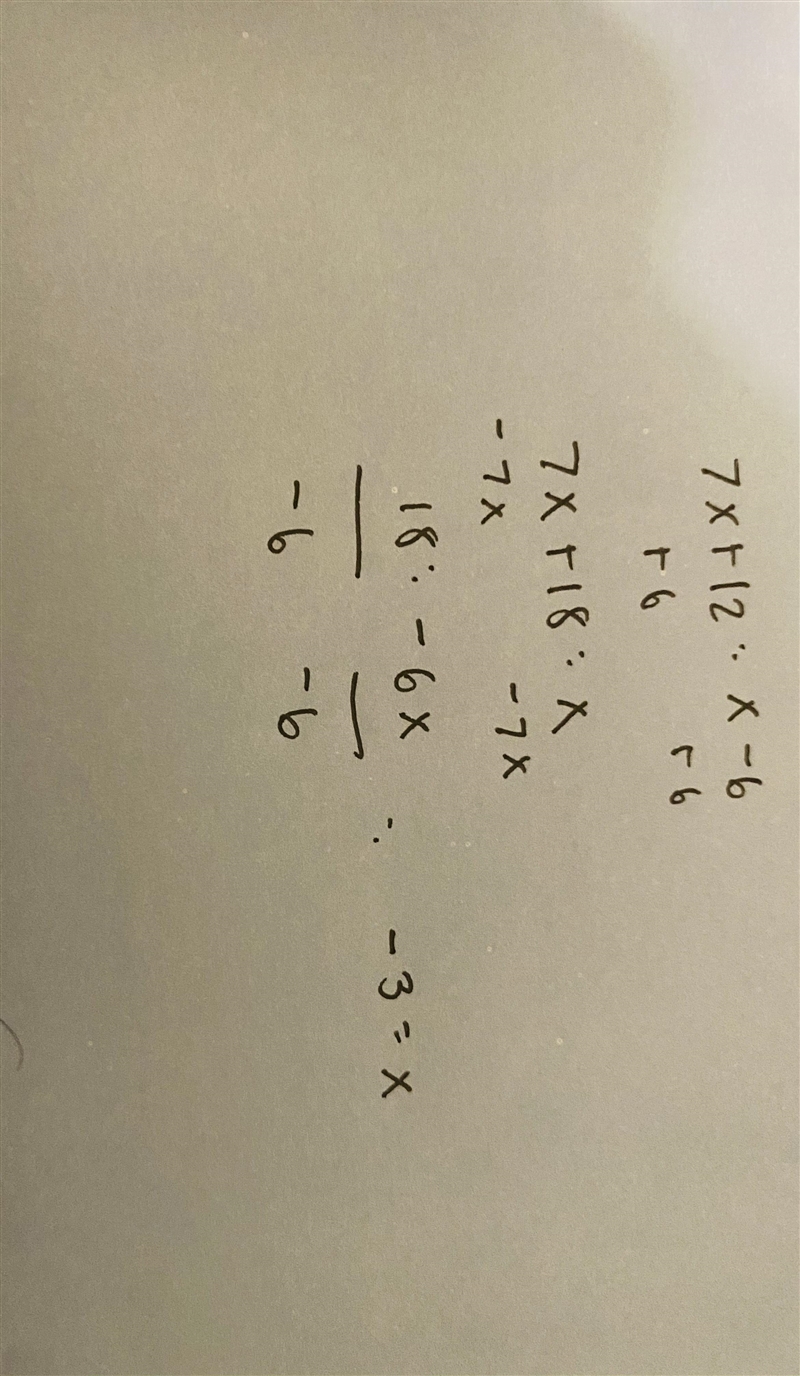 7x+12 = x-6
+6 +6
7x+18 = x
-7x -7x
18 = -6x = -3 = x
-6 -6